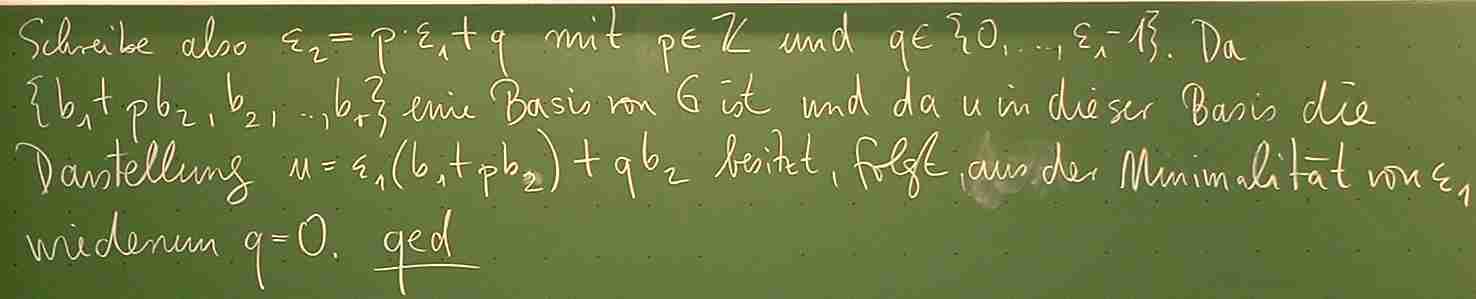 Schreibe also ε₂ = p·ε₁ + q mit p∈ℤ und q∈{0,...,ε₁-1}. Da
{b₁+pb₂, b₂, ..., bᵣ} eine Basis von G ist und da u in dieser Basis die
Darstellung u = ε₁(b₁+pb₂) + qb₂ besitzt, folgt, aus der Minimalität von ε₁
wiederum q=0. qed